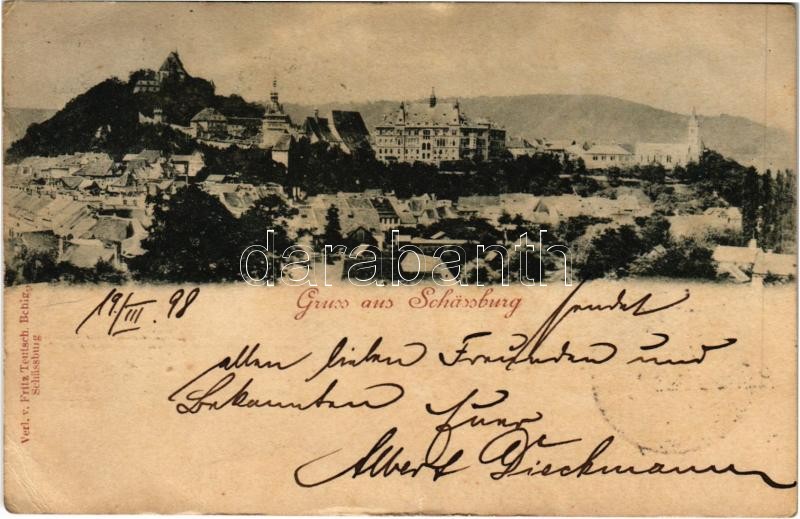 darabanth
19./III. 98
Gruss aus Schässburg
sendet
allen lieben Freunden und
Bekannten Euer
Albert Dieckmann
Verl. v. Fritz Teutsch. Bchlg.
Schässburg